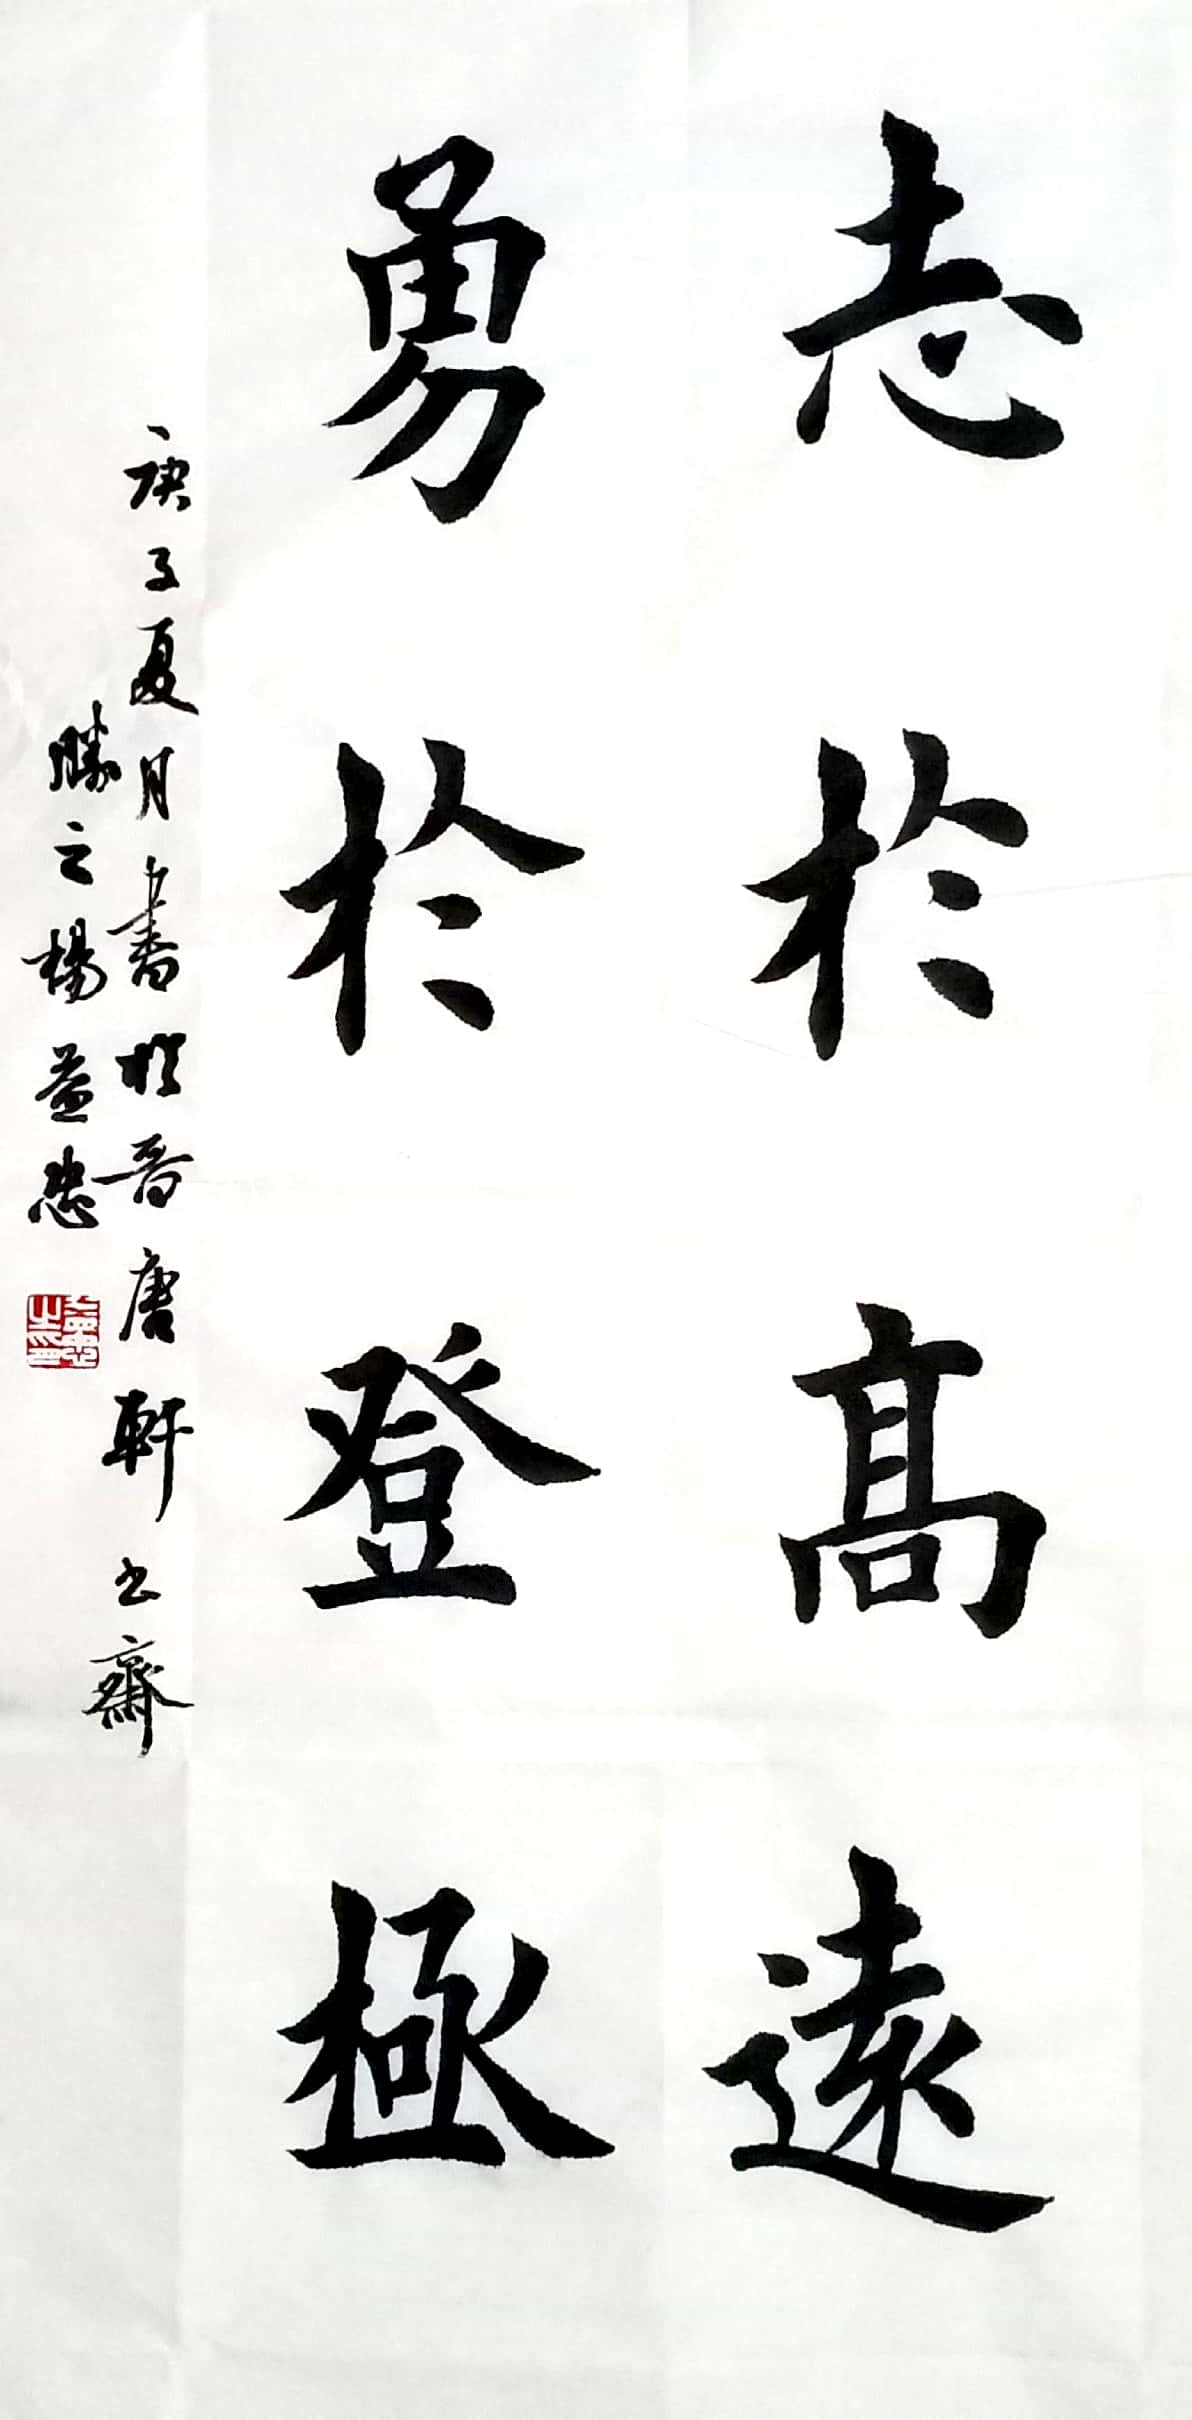 志於高遠
勇於登極
庚子夏月書於晋唐軒書齋
勝之楊益忠